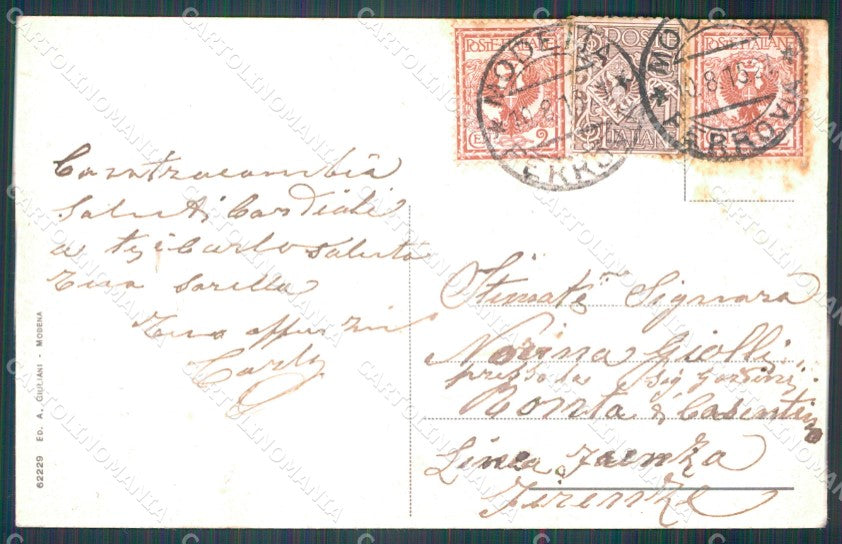 POSTE ITALIANE
CENT. 2
POSTE
ITALIANE
POSTE ITALIANE
MODENA
10.8.13
FERROVIA
MODENA
10.8.13
FERROVIA
Contracambia
saluti Cordiali
a te Carlo saluta
tua sorella
tuo
Carlo
Stimate Signora
Norina Giolli
presso la Sig
Ronta di Casentino
Linea Faenza
Firenze
62229 ED. A. GIULIANI - MODENA
CARTOLINOMANIA